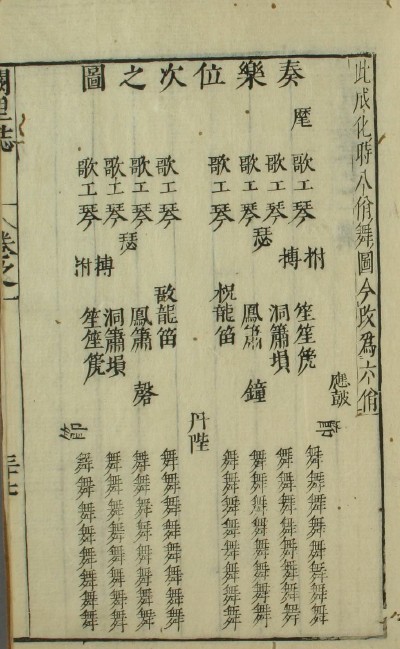 此成化時八佾舞圖今改為六佾
奏樂位次之圖
麾
歌工琴 搏拊 笙笙篪
應鼓
歌工琴 洞簫塤
歌工琴 瑟 鳳簫 鐘
歌工琴 柷龍笛
丹陛
歌工琴 敔龍笛
歌工琴 瑟 鳳簫 磬
歌工琴 搏拊 洞簫塤
歌工琴 笙笙篪
節
舞舞舞舞舞舞舞舞
舞舞舞舞舞舞舞舞
舞舞舞舞舞舞舞舞
舞舞舞舞舞舞舞舞
舞舞舞舞舞舞舞舞
舞舞舞舞舞舞舞舞
舞舞舞舞舞舞舞舞
舞舞舞舞舞舞舞舞
闕里誌
卷之一